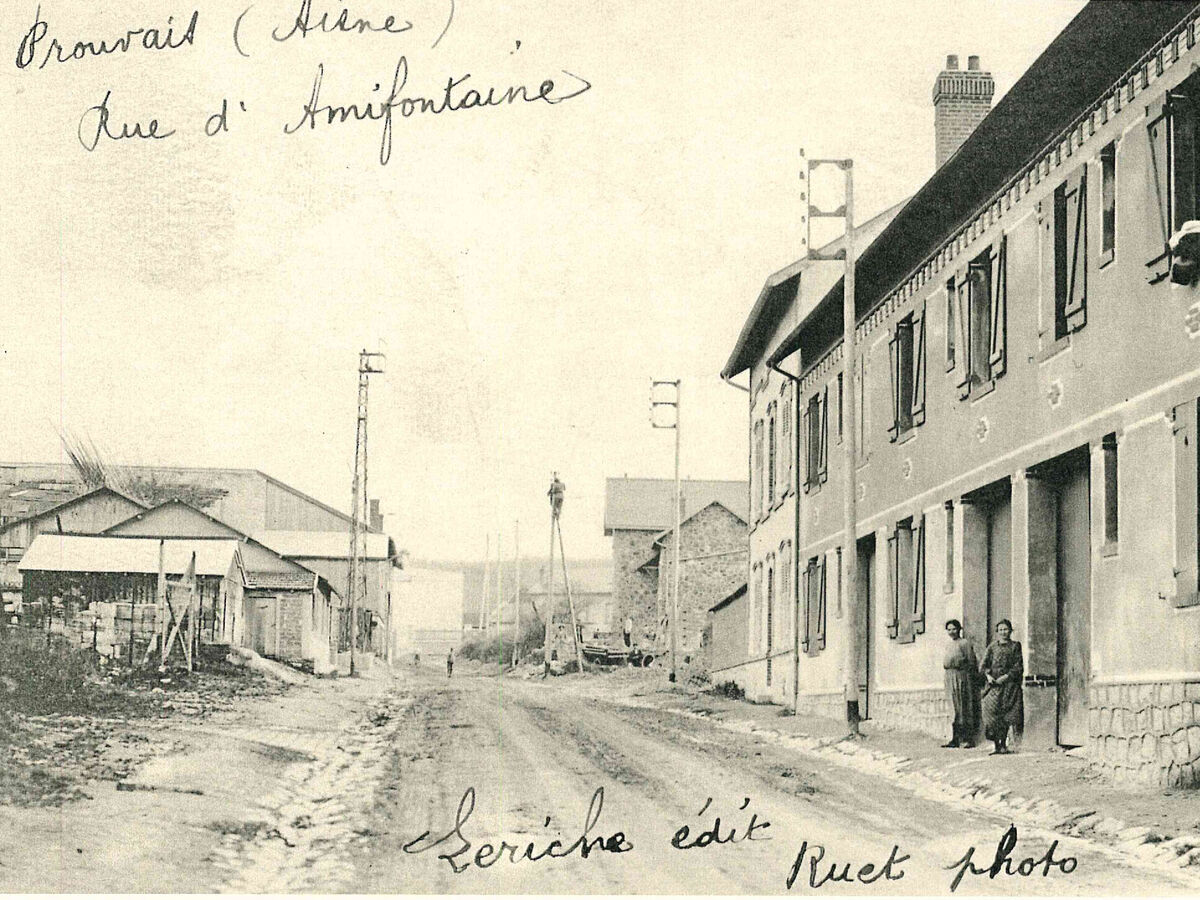 Prouvais (Aisne)
Rue d'Amifontaine
Leriche édit
Ruet photo